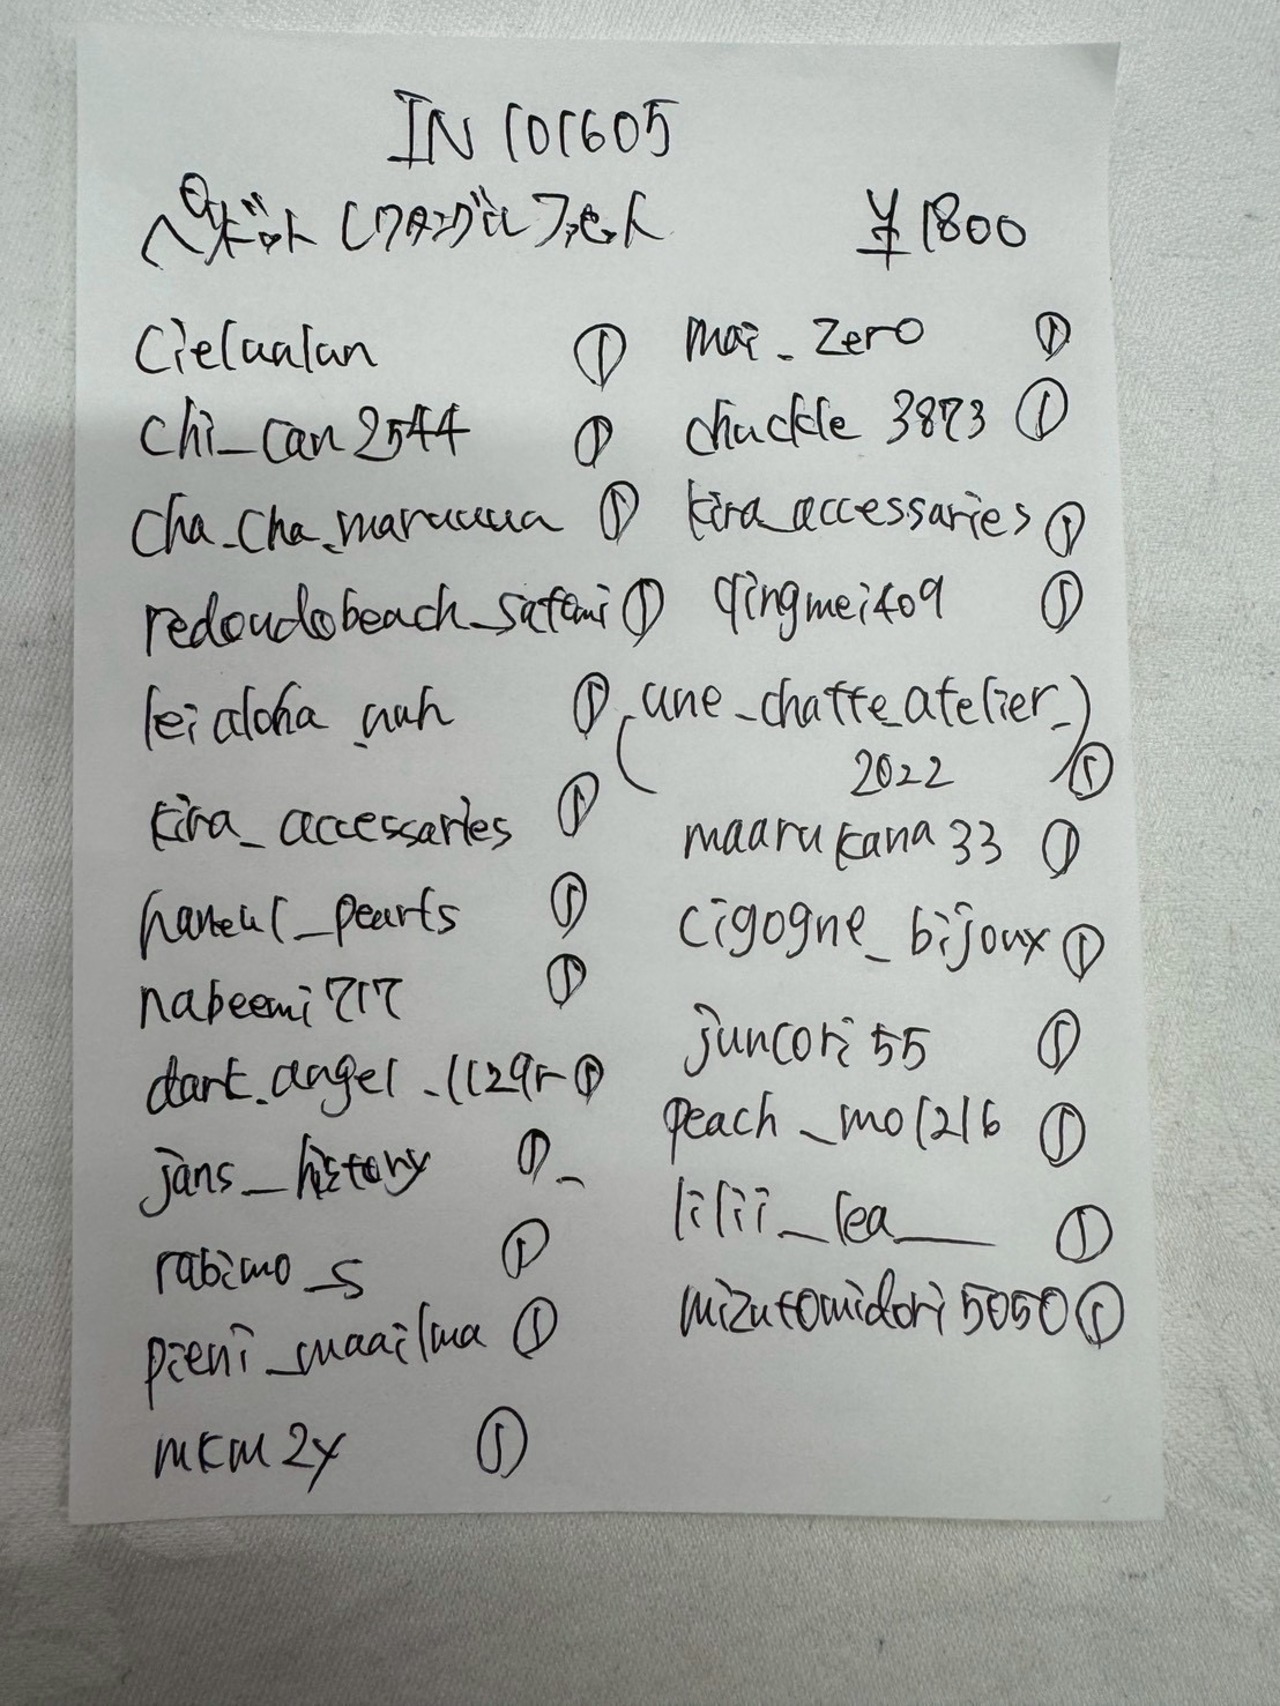 IN 101605
ペリドット レクタングル ファセット ¥1800
cielualan ①
chi_can2544 ①
cha_cha_maruuuua ①
redoudobeach_satomi ①
leialoha_nuh ①
kira_accessaries ①
haneul_pearls ①
nabeemi717 ①
dark_angel_1129r ①
jans_history ①_
rabimo_s ①
pieni_maailma ①
mkm2y ①
mai_zero ①
chuckle3873 ①
kira_accessaries ①
qingmei409 ①
(une_chatte_atelier_)
2022 ①
maarukana33 ①
cigogne_bijoux ①
juncori55 ①
peach_mo1216 ①
lilii_lea___ ①
mizutomidori5050 ①